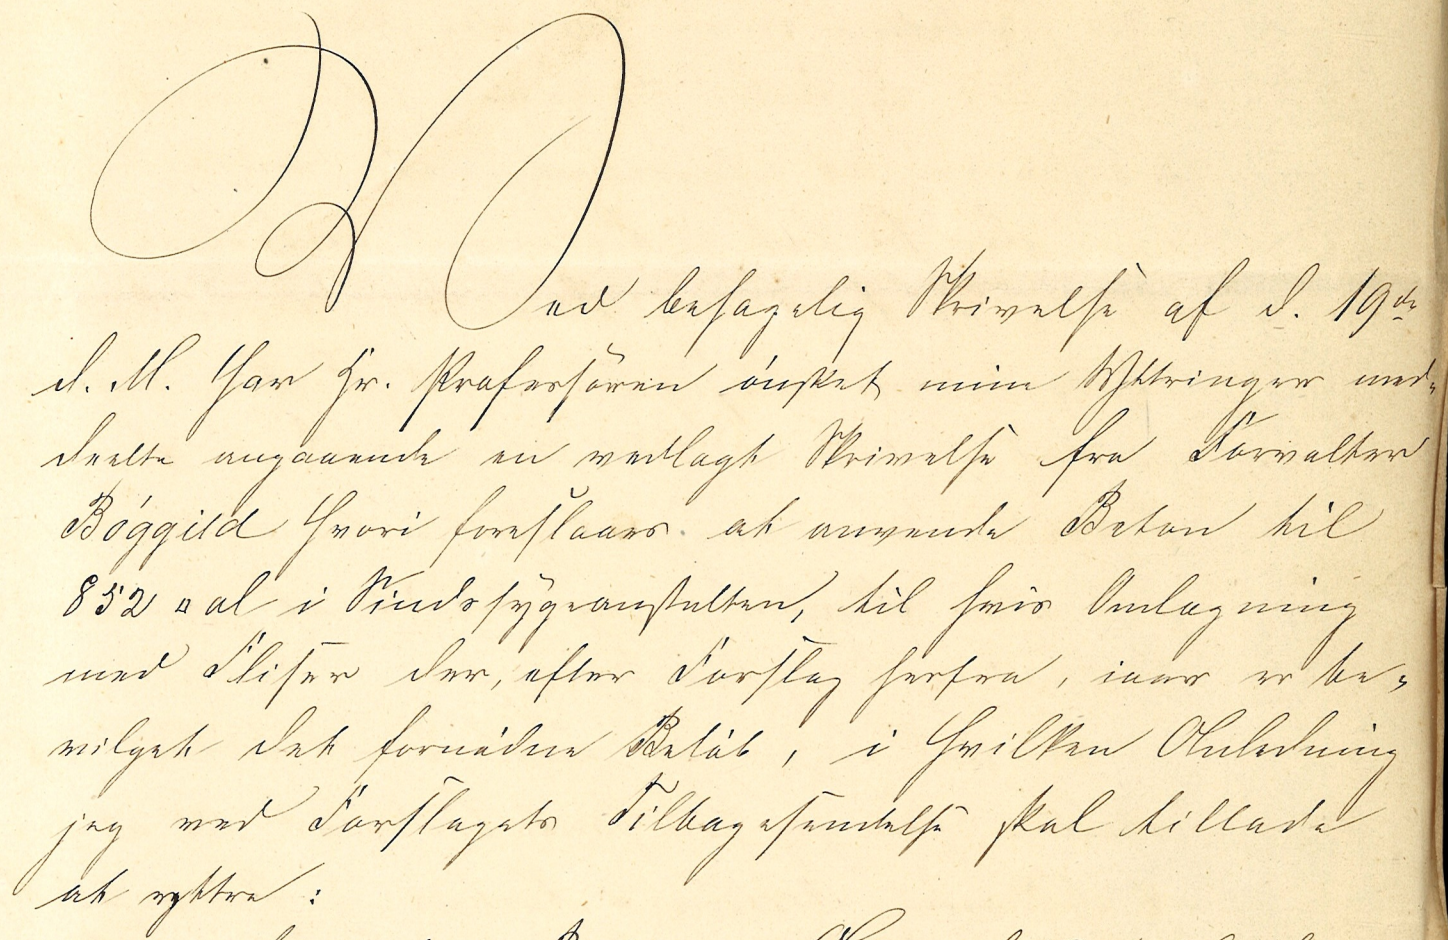 Ved behagelig Skrivelse af d. 19de
d. M. har Hr. Professoren ønsket mine Yttringer med-
deelte angaaende en vedlagt Skrivelse fra Forvalter
Bøggild hvori foreslaaes at anvende Beton til
852 □ al i Sindssygeanstalten, til hvis Omlægning
med Fliser der, efter Forslag herfra, iaar er be-
vilget det fornødne Beløb, i hvilken Anledning
jeg ved Forslagets Tilbagesendelse skal tillade
at yttre: